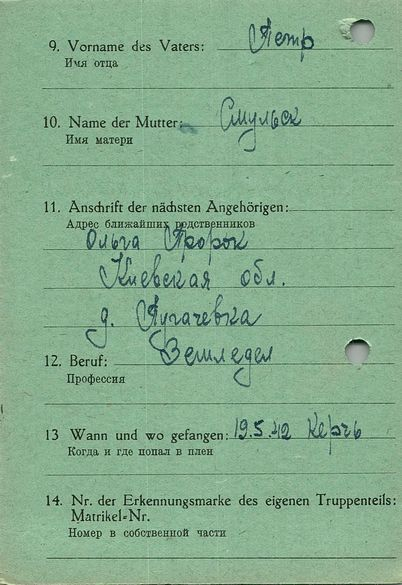 9. Vorname des Vaters: Петр
Имя отца
10. Name der Mutter: Смульск
Имя матери
11. Anschrift der nächsten Angehörigen:
Адрес ближайших родственников
Ольга Пророк
Киевская обл.
д. Пугачевка
12. Beruf: Земледел
Профессия
13 Wann und wo gefangen: 19.5.42 Керчь
Когда и где попал в плен
14. Nr. der Erkennungsmarke des eigenen Truppenteils:
Matrikel-Nr.
Номер в собственной части